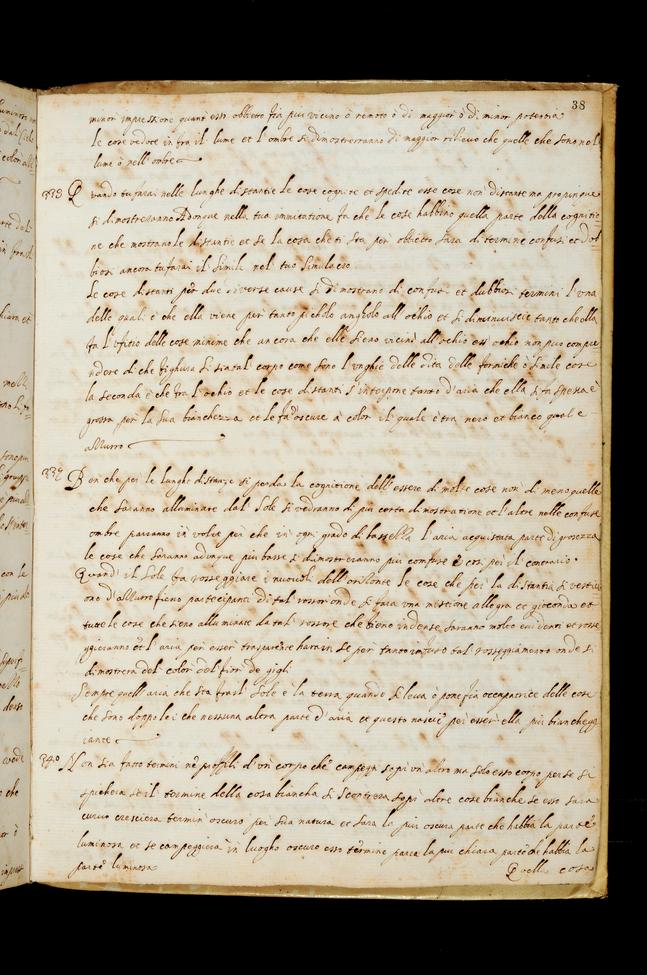 38
minor impressione quant' esso obbietto fia piu vicino ò remoto ò di maggior ò di minor potentia
Le cose vedute in fra il lume et l'ombre si dimosterranno di maggior rilievo che quelle che sono nel
lume ò nell' ombre
Quando tu farai nelle lunghe distantie le cose cognite et spedite esse cose non distante ma propinque
si dimosterranno Adonque nella tua immitatione fa che le cose habbino quella parte della cognitio
ne che mostrano le distantie et se la cosa che ti sta per obbietto sara di termine confusi et dub
biosi ancora tu farai il simile nel tuo simulacro
Le cose distanti per due diverse cause si dimostrano di confusi et dubbiosi termini l'una
delle quali è che ella viene per tanto picholo angholo all' ochio et si diminuiscie tanto che ella
fa l'ufitio delle cose minime che ancora che elle sieno vicini all' ochio esso ochio non puo compre
ndere di che fighura si sia tal corpo come sono l'unghie delle dita delle formiche ò simile cose
la seconda è che fra l'ochio et le cose distanti s'interpone tanto d'aria che ella si fa spessa è
grossa per la sua bianchezza et le fa oscure a color il quale è tra nero et bianco qual e
azzurro
Ben che per le lunghe distanze si perda la cognitione dell' essere di molte cose non di meno quelle
che saranno alluminate dal sole si vedranno di più certa dimostratione et l'altre nelle confuse
ombre parranno involte per che in ogni grado di bassezza l'aria acquista parte di grosezza
le cose che saranno adonque più basse si dimosterranno più confuse è cosi per il contrario.
Quand' il sole fa rosseggiare i nuvoli dell' orizonte le cose che per la distantia si vestiv
ono d'azzurro fieno partecipanti di tal rossori onde si fara una mistione allegra et gioconda et
tutte le cose che sieno alluminate da tal rossore che fieno indense saranno molto evidenti et rosse
ggieranno et l'aria per esser trasparente harà in se per tanto infuso tal rosseggiamento onde si
dimostrera del color del fior de gigli
Sempre quell' aria che sta fra il sole e la terra quando si leva ò pone fia occupatrice delle cose
che sono doppo lei che nessuna altra parte d'aria et questo nascie per esser ella più biancheggi
cante
340 Non sia fatto termini ne proffili d'un corpo che campeggi sopr' un altro ma solo esso corpo per se si
spichera se il termine della cosa biancha si scontrera sopr' altre cose bianche se esso sara
curvo crescierra termin' oscuro per sua natura et sara la più oscura parte che habbia la parte
luminosa et se campeggiera in luogho oscuro esso termine parra la piu chiara parte che habbia la
parte luminosa
Quella cosa